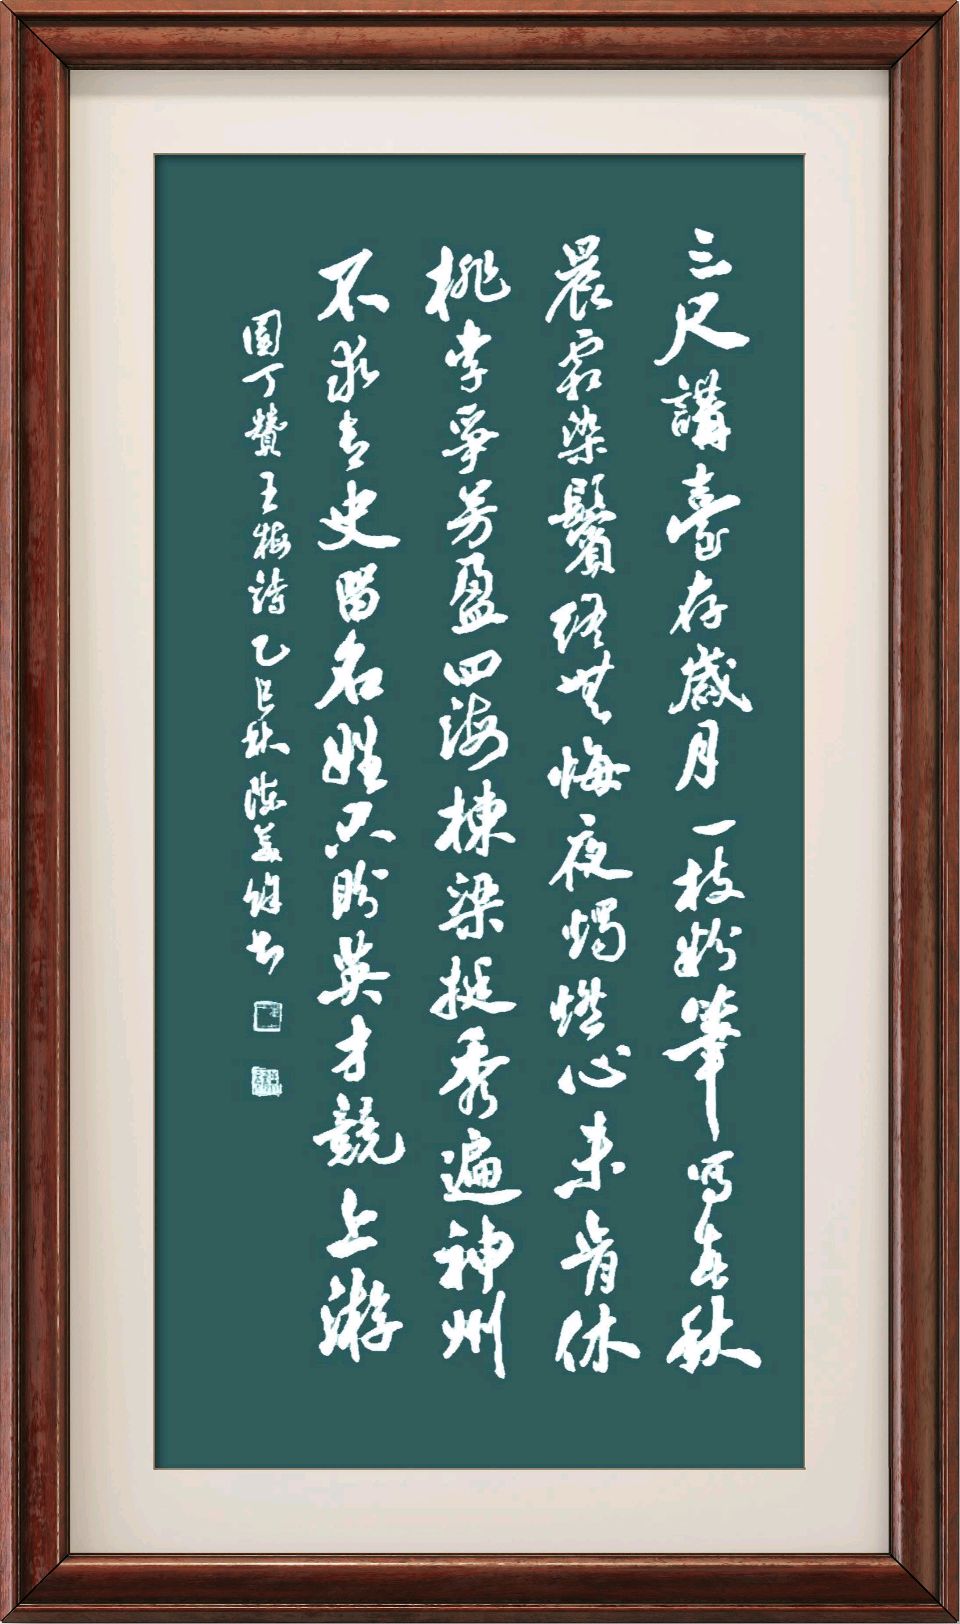 三尺講臺存歲月一枝粉筆寫春秋
晨霜染鬢終無悔夜燭燃心未肯休
桃李爭芳盈四海棟梁挺秀遍神州
不求青史留名姓只盼英才競上游
園丁贊王梅詩乙巳秋陳益書